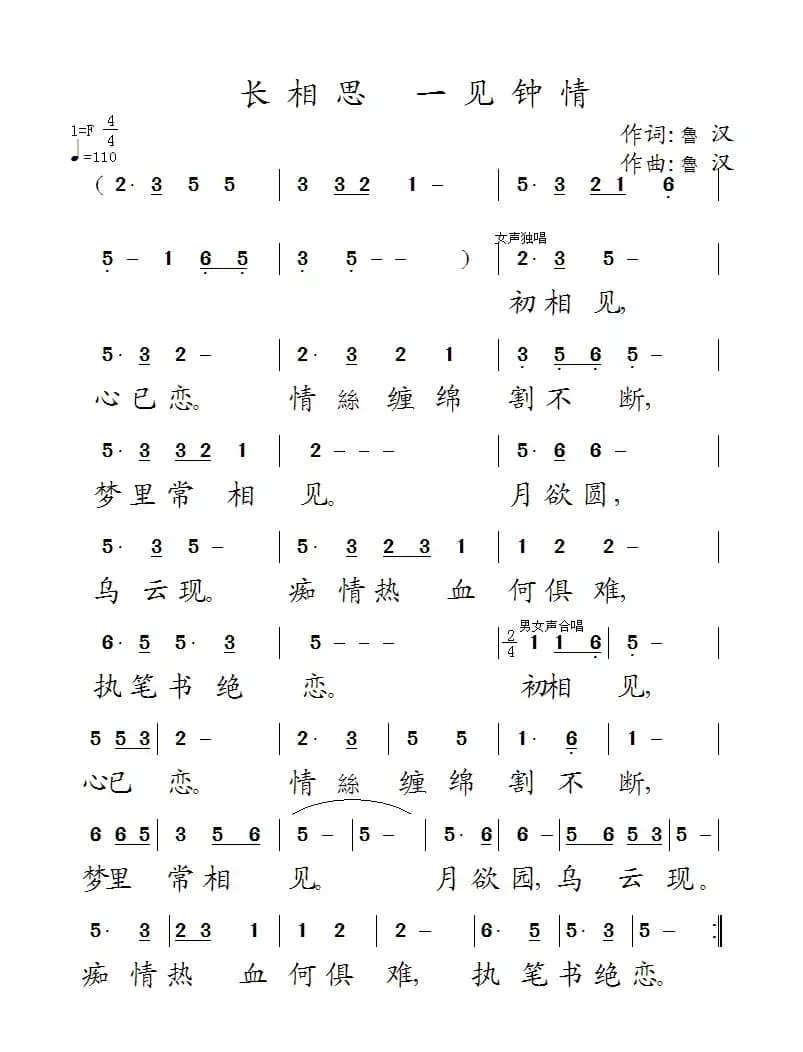 长相思 一见钟情
1=F 4/4
♩=110
作词: 魯 汉
作曲: 魯 汉
( 2· 3 5 5 | 3 3 2 1 – | 5· 3 2 1 6̣ |
5̣ – 1 6̣ 5̣ | 3̣ 5̣ – – ) | 2· 3 5 – |
女声独唱
初相见,
5· 3 2 – | 2· 3 2 1 | 3̣ 5̣ 6̣ 5̣ – |
心已恋。 情絲缠绵 割不断,
5· 3 3 2 1 | 2 – – – | 5· 6 6 – |
梦里常相 见。 月欲圆,
5· 3 5 – | 5· 3 2 3 1 | 1 2 2 – |
乌云现。 痴情热血 何俱难,
6· 5 5· 3 | 5 – – – | 2/4 1 1 6̣ | 5̣ – |
男女声合唱
执笔书绝 恋。 初相见,
5 5 3 | 2 – | 2· 3 | 5 5 | 1· 6̣ | 1 – |
心已恋。 情絲缠绵割不断,
6 6 5 | 3 5 6 | 5 – | 5 – | 5· 6 | 6 – | 5 6 5 3 | 5 – |
梦里常相见。 月欲园,乌云现。
5· 3 | 2 3 1 | 1 2 | 2 – | 6· 5 | 5· 3 | 5 – :‖
痴情热血何俱难,执笔书绝恋。